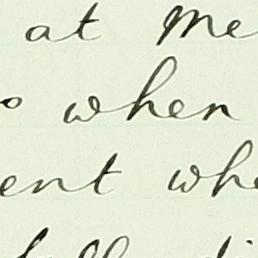 at Me
o when
ent whe